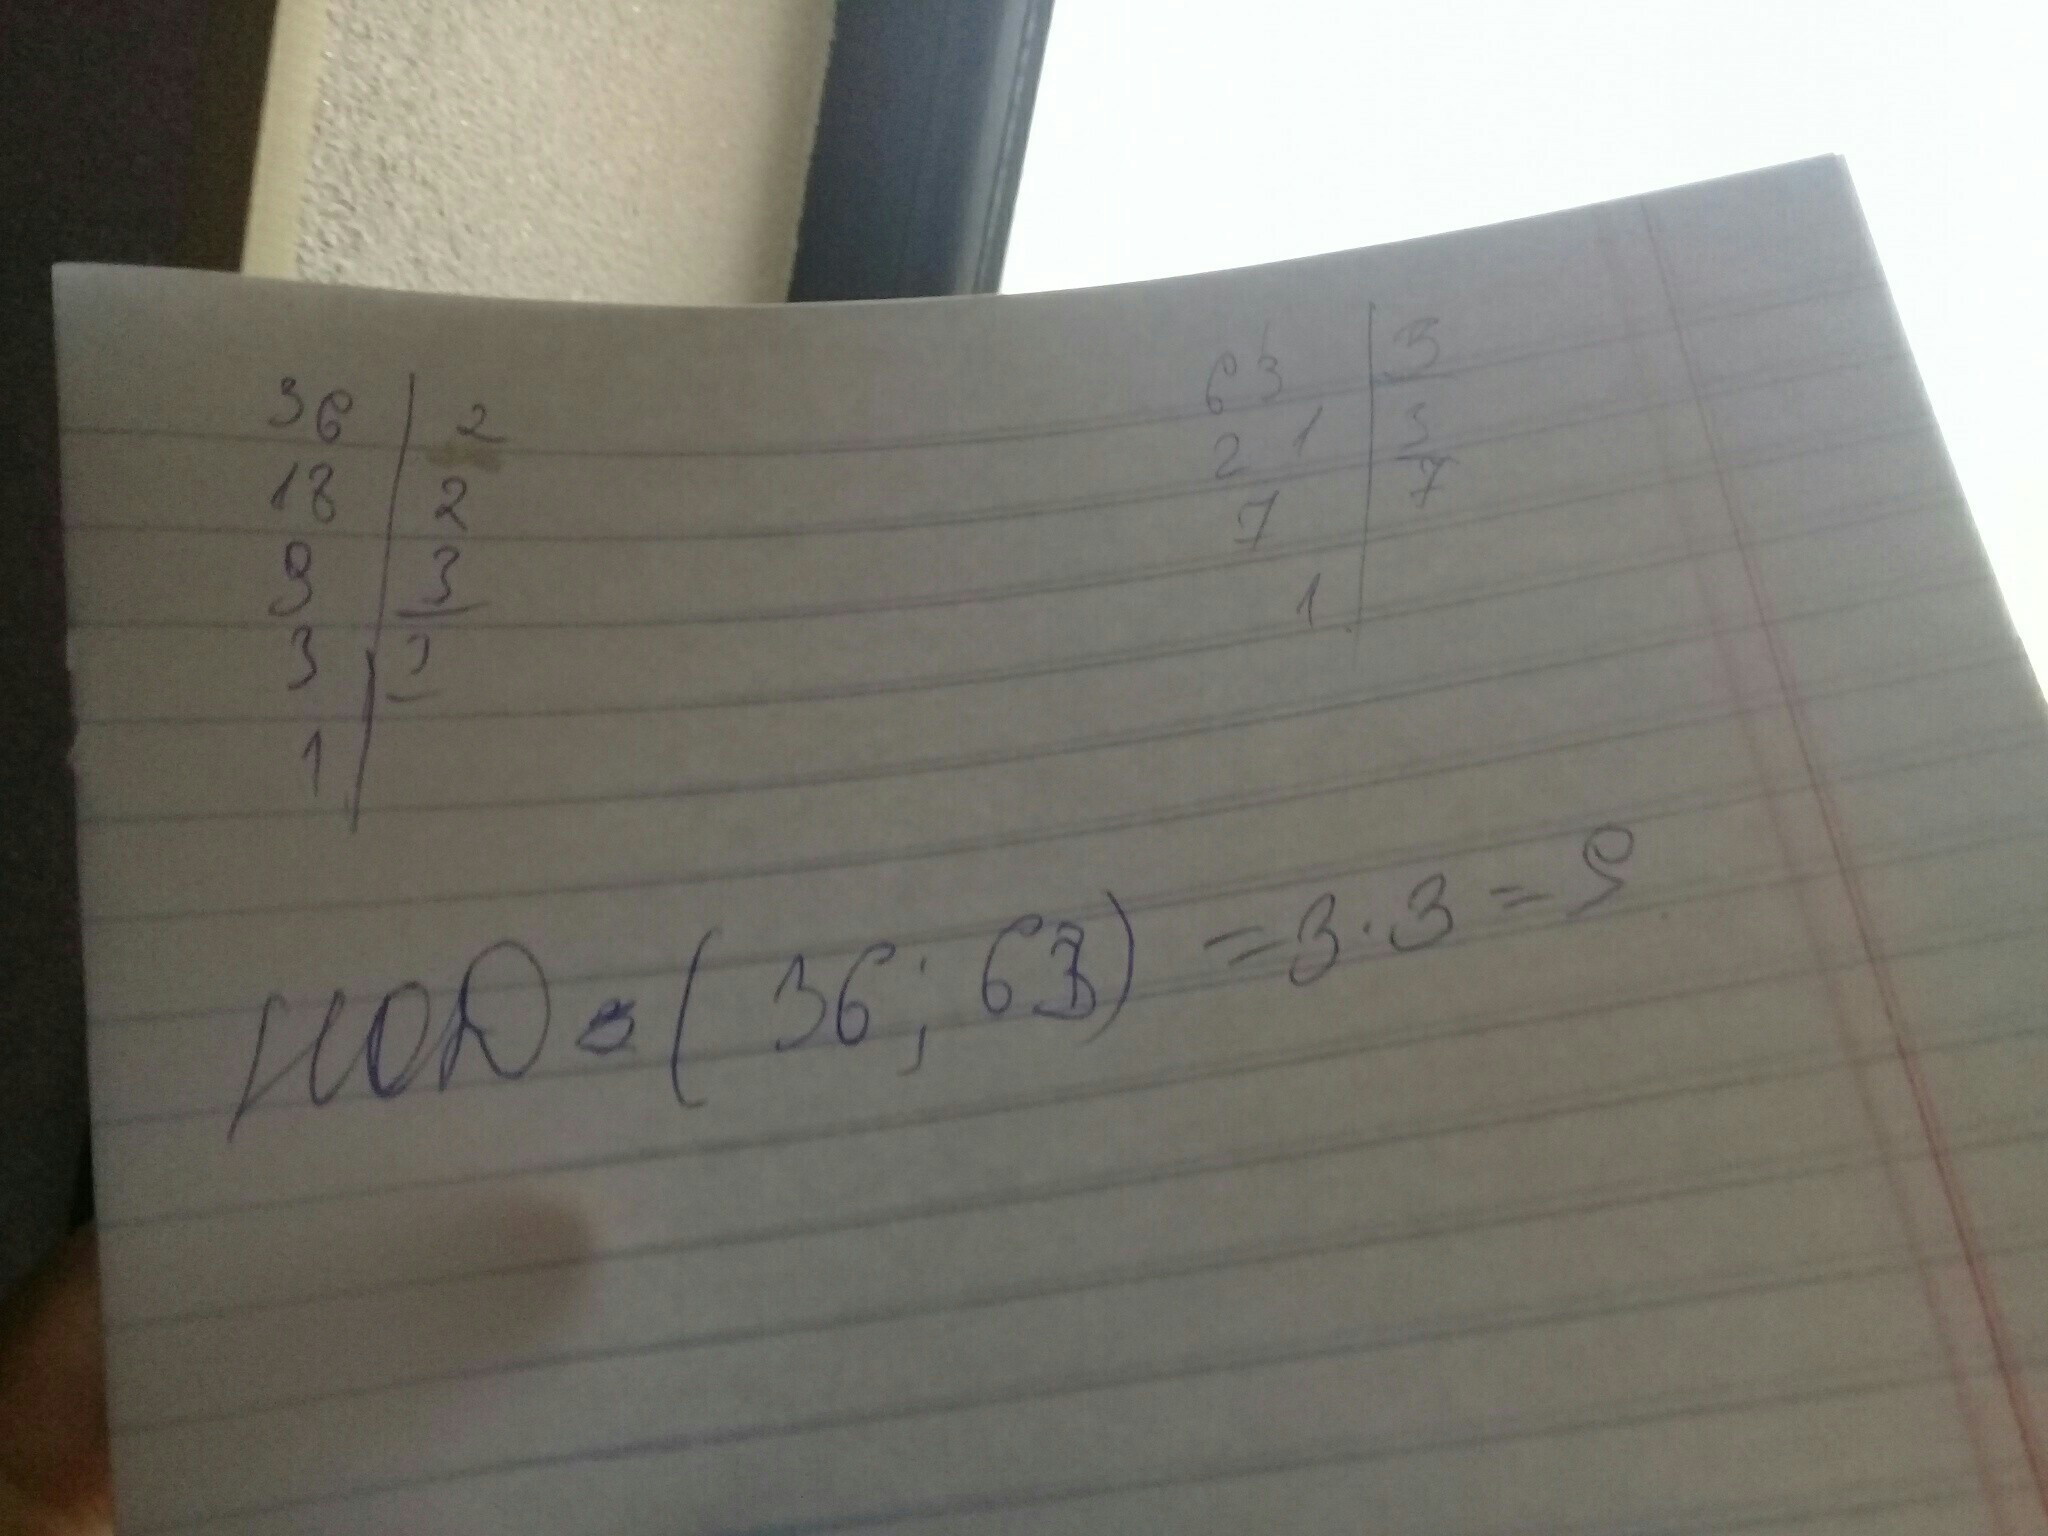 36 | 2
18 | 2
9 | 3
3 | 3
1 |
63 | 3
21 | 3
7 | 7
1 |
НОД = (36; 63) = 3 · 3 = 9